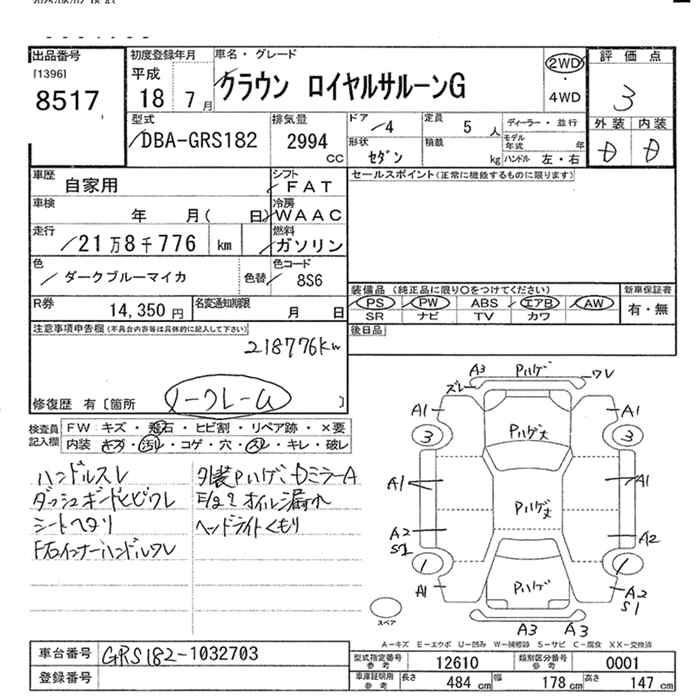 出品番号
[1396]
8517
初度登録年月
平成
18 7月
車名・グレード
クラウン ロイヤルサルーンG
2WD
・4WD
評価点
3
外装 内装
D D
型式
DBA-GRS182
排気量
2994
CC
ドア
4
定員
5 人
形状
セダン
積載
kg
ディーラー・並行
モデル年式 年
ハンドル 左・右
車歴
自家用
シフト
FAT
車検
年 月( 日)
冷房
WAAC
走行
21万8千776 km
燃料
ガソリン
色
ダークブルーマイカ
色替
色コード
8S6
R券
14,350円
名変通知期限
月 日
セールスポイント(正常に機能するものに限ります)
装備品 (純正品に限り○をつけてください)
PS PW ABS エアB AW
SR ナビ TV カワ
新車保証書
有・無
後日品
注意事項申告欄(不具合内容等は具体的に記入して下さい)
218776Km
修復歴 有〔箇所 ノークレーム 〕
検査員記入欄
FW キズ・飛石・ヒビ割・リペア跡・×要
内装 キズ・汚レ・コゲ・穴・スレ・キレ・破レ
ハンドルスレ
ダッシュボードヒビワレ
シートヘタリ
F右インナーハンドルワレ
外装Pハゲ、DミラーA
E/g オイル漏れ
ヘッドライトくもり
A3 Pハゲ ワレ
ズレ
A1 A1
3 3
Pハゲ大
A1 A1
Pハゲ大
A2 A2
S1
1 1
Pハゲ
A1 A2
S1
A3 A3
スペア
A−キズ E−エクボ U−凹み W−補修跡 S−サビ C−腐食 XX−交換済
車台番号 GRS182-1032703
登録番号
型式指定番号 参考 12610 類別区分番号 参考 0001
車庫証明用 参考 長さ 484 cm 幅 178 cm 高さ 147 cm